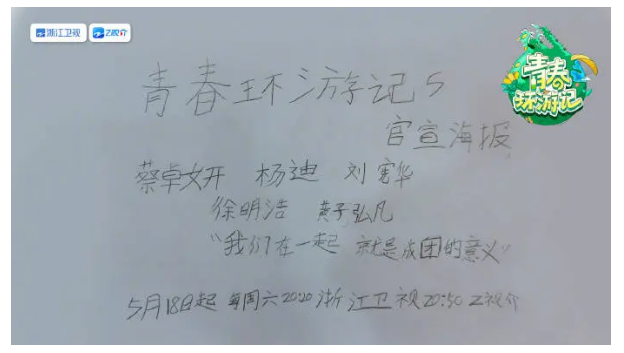 浙江卫视 Z视介
青春环游记
青春环游记5
官宣海报
蔡卓妍 杨迪 刘宪华
徐明浩 黄子弘凡
“我们在一起 就是成团的意义”
5月18日起 每周六20:20 浙江卫视 20:50 Z视介